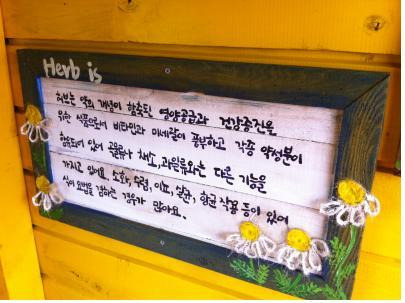 Herb is
허브는 약의 개념이 함축된 영양공급과 건강증진을
위한 식품으로써 비타민과 미네랄이 풍부하고 각종 약성분이
함유되어 있어 곡물류나 채소, 과일류와는 다른 기능을
가지고 있어요. 소화, 수렴, 이뇨, 살균, 항균 작용 등이 있어
식이요법을 겸하는 경우가 많아요.